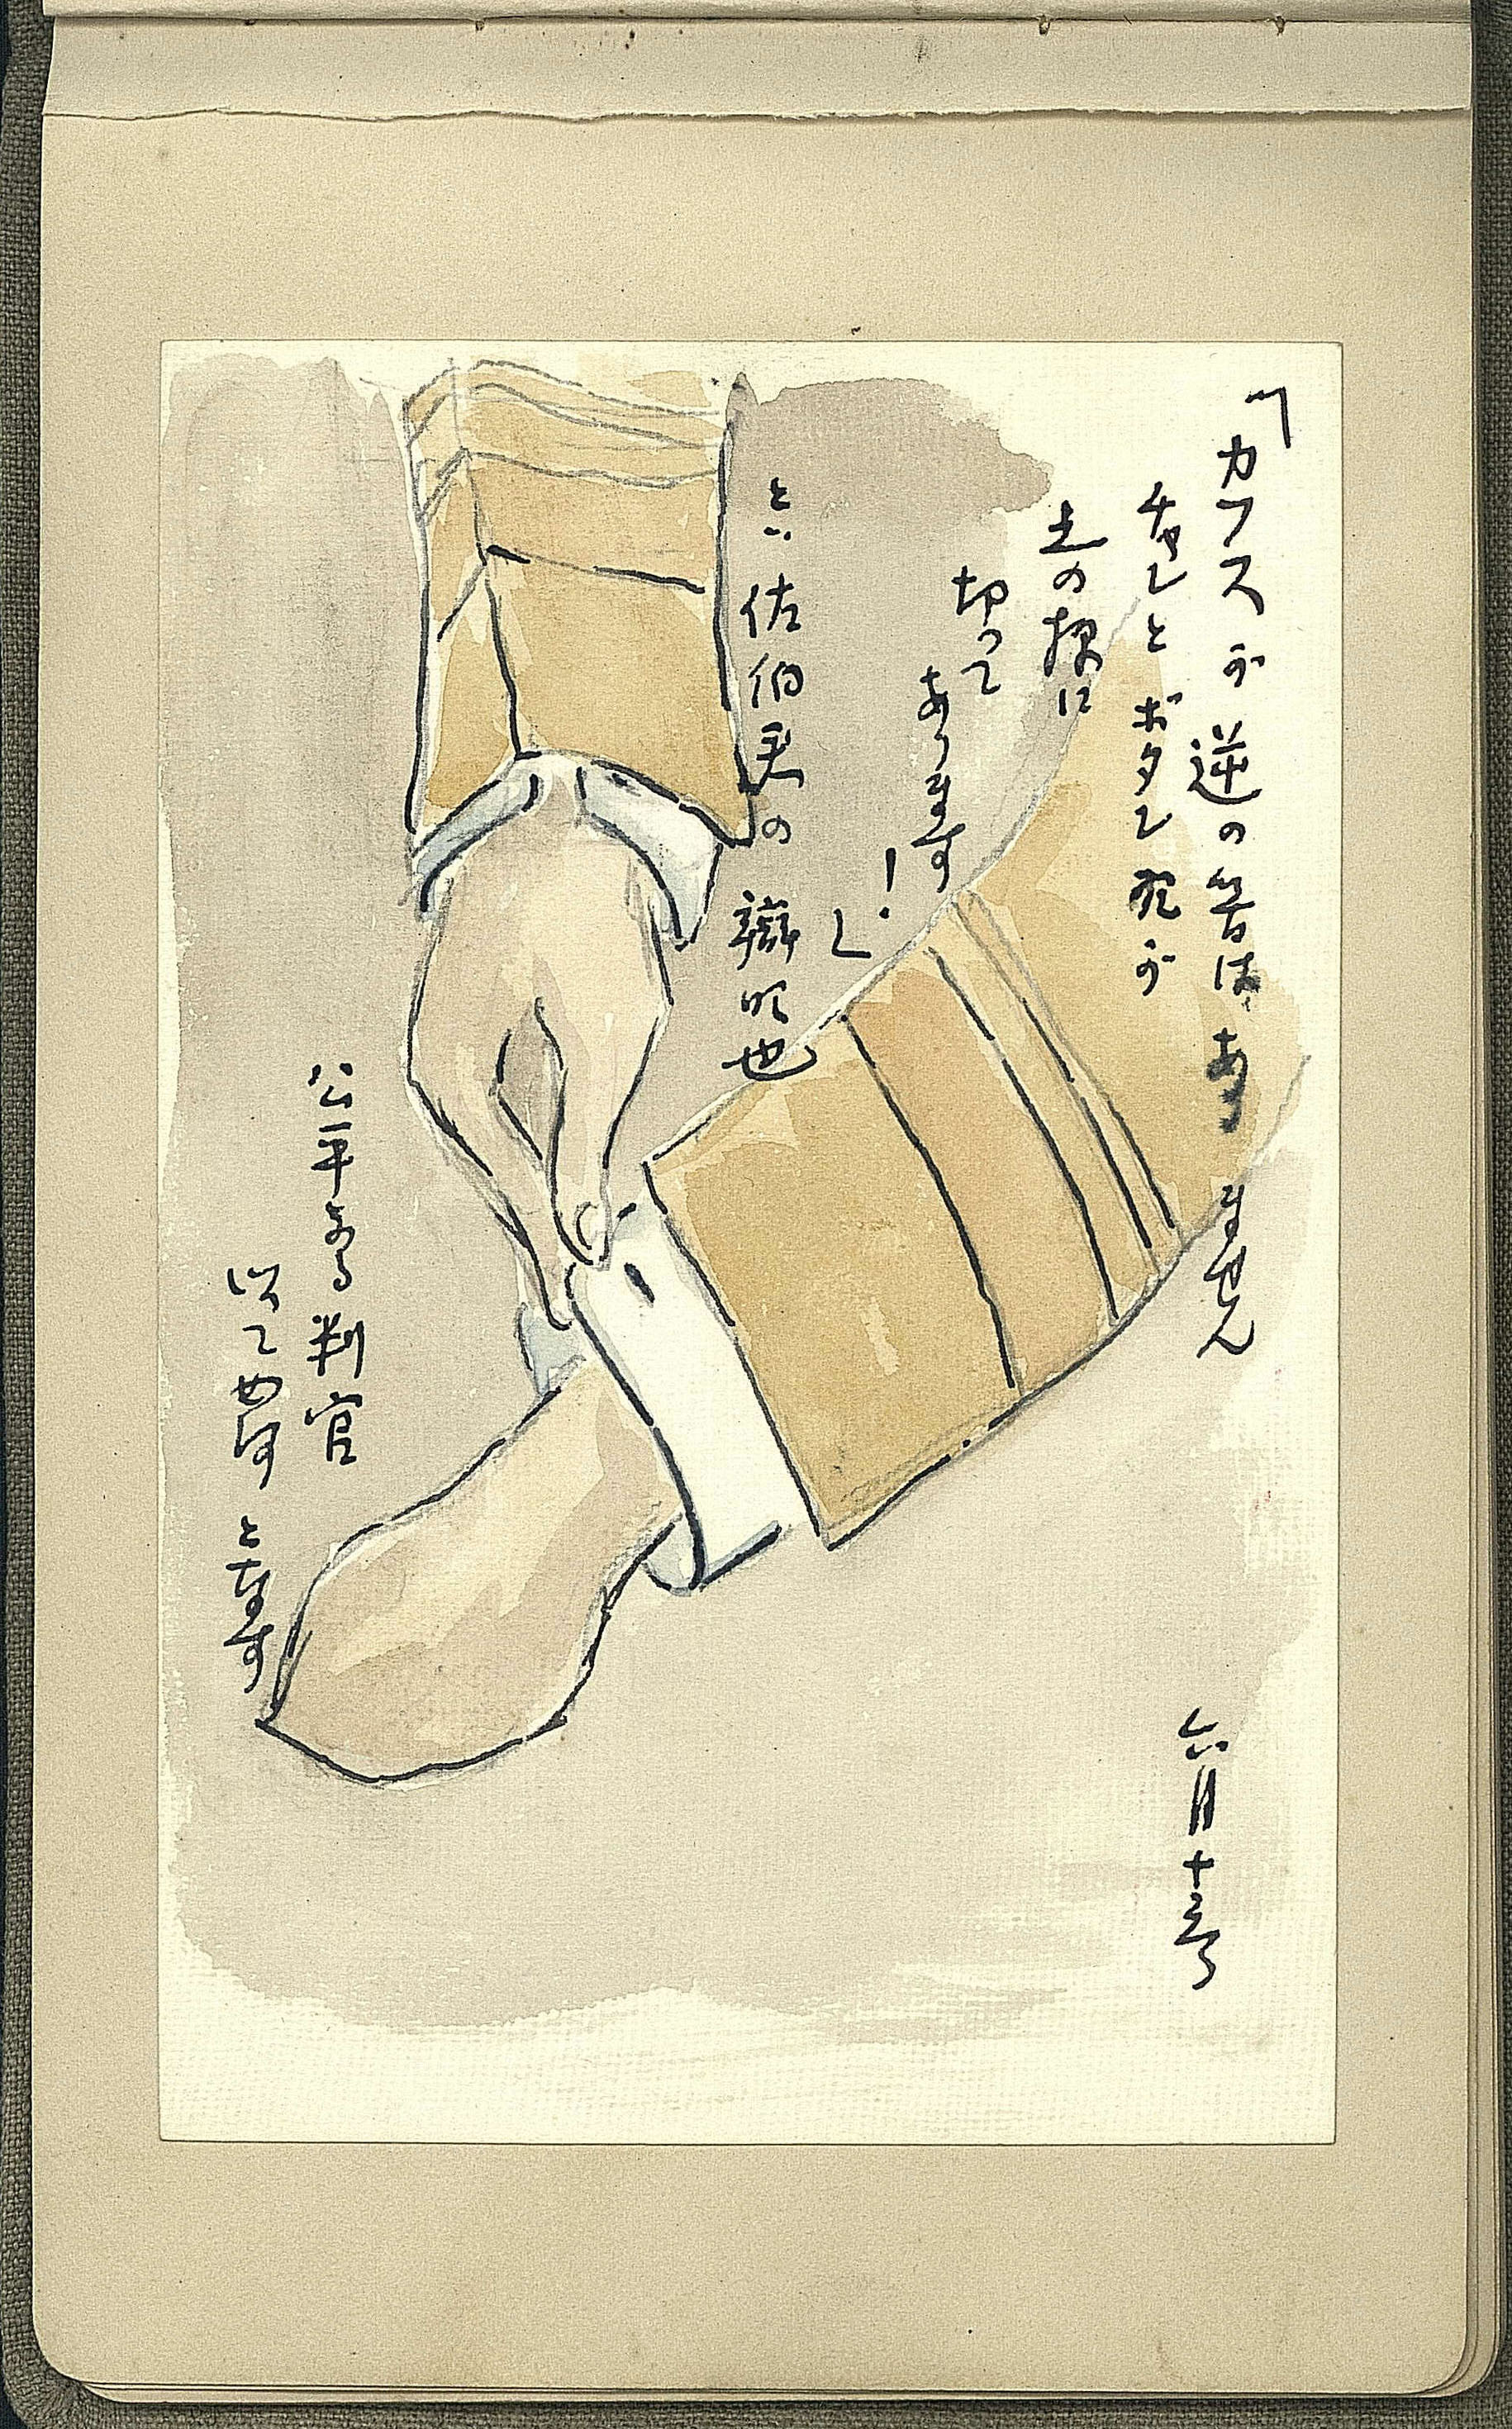 「カフスが逆の筈は、ありません
チャンとボタン穴が
土の様に
切って
あります
！」
と、佐伯君の辯明也
公平なる判官
以て如何となす
六月十三日